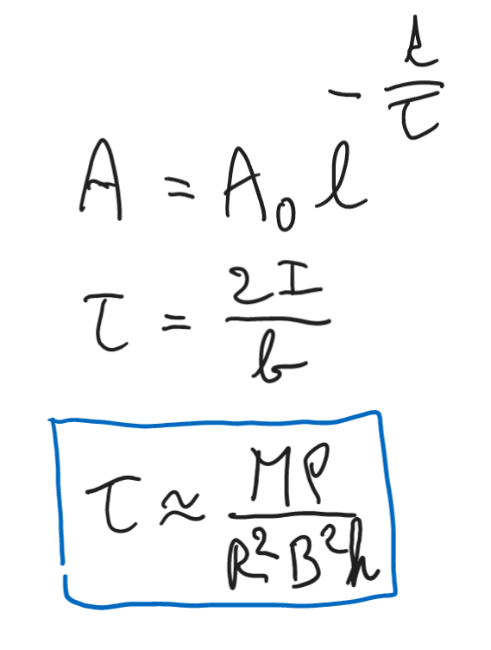 A = A₀ e^(-t/τ)
τ = 2I/b
τ ≈ Mρ/(R²B²h)